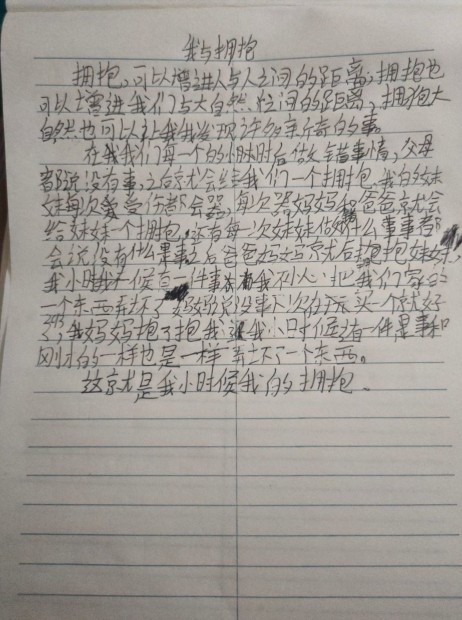 我与拥抱
拥抱,可以增进人与人之间的距离;拥抱也
可以增进我们与大自然之间的距离,拥抱大
自然也可以让我发现许多新奇的事。
在我我们每一个的小时时后做错事情,父母
都说没有事,之后就会给我们一个拥抱,我的妹
妹每次受伤都会哭,每次哭妈妈和爸爸就会
给妹妹一个拥抱。还有每一次妹妹做什么事都
会说没有什么事之后爸爸妈妈就后抱抱妹妹,
我小时候有一件事我不小心把我们家的
一个东西弄坏了妈妈说没事下次在玩买一个就好
了,我妈妈抱了抱我,我小时候还有一件是事和
刚才的一样也是一样弄坏了一个东西。
这就是我小时候我的拥抱。